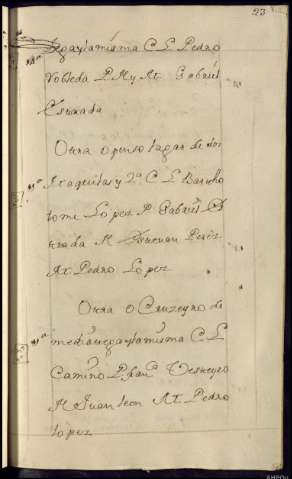 23
Segaylamisma C L Pedro
robleda P M y At Gabriel
Estrada
Otra o penso lagar de dos
Ataquitas y 2ª C L Bartho
lome Lopez P Gabriel Es
trada M Esteuan Perez
At Pedro Lopez
Otra o Cruzeyro de
mediasegaylamisma C L
Camino P Juan
M Juan leon At Pedro
lopez